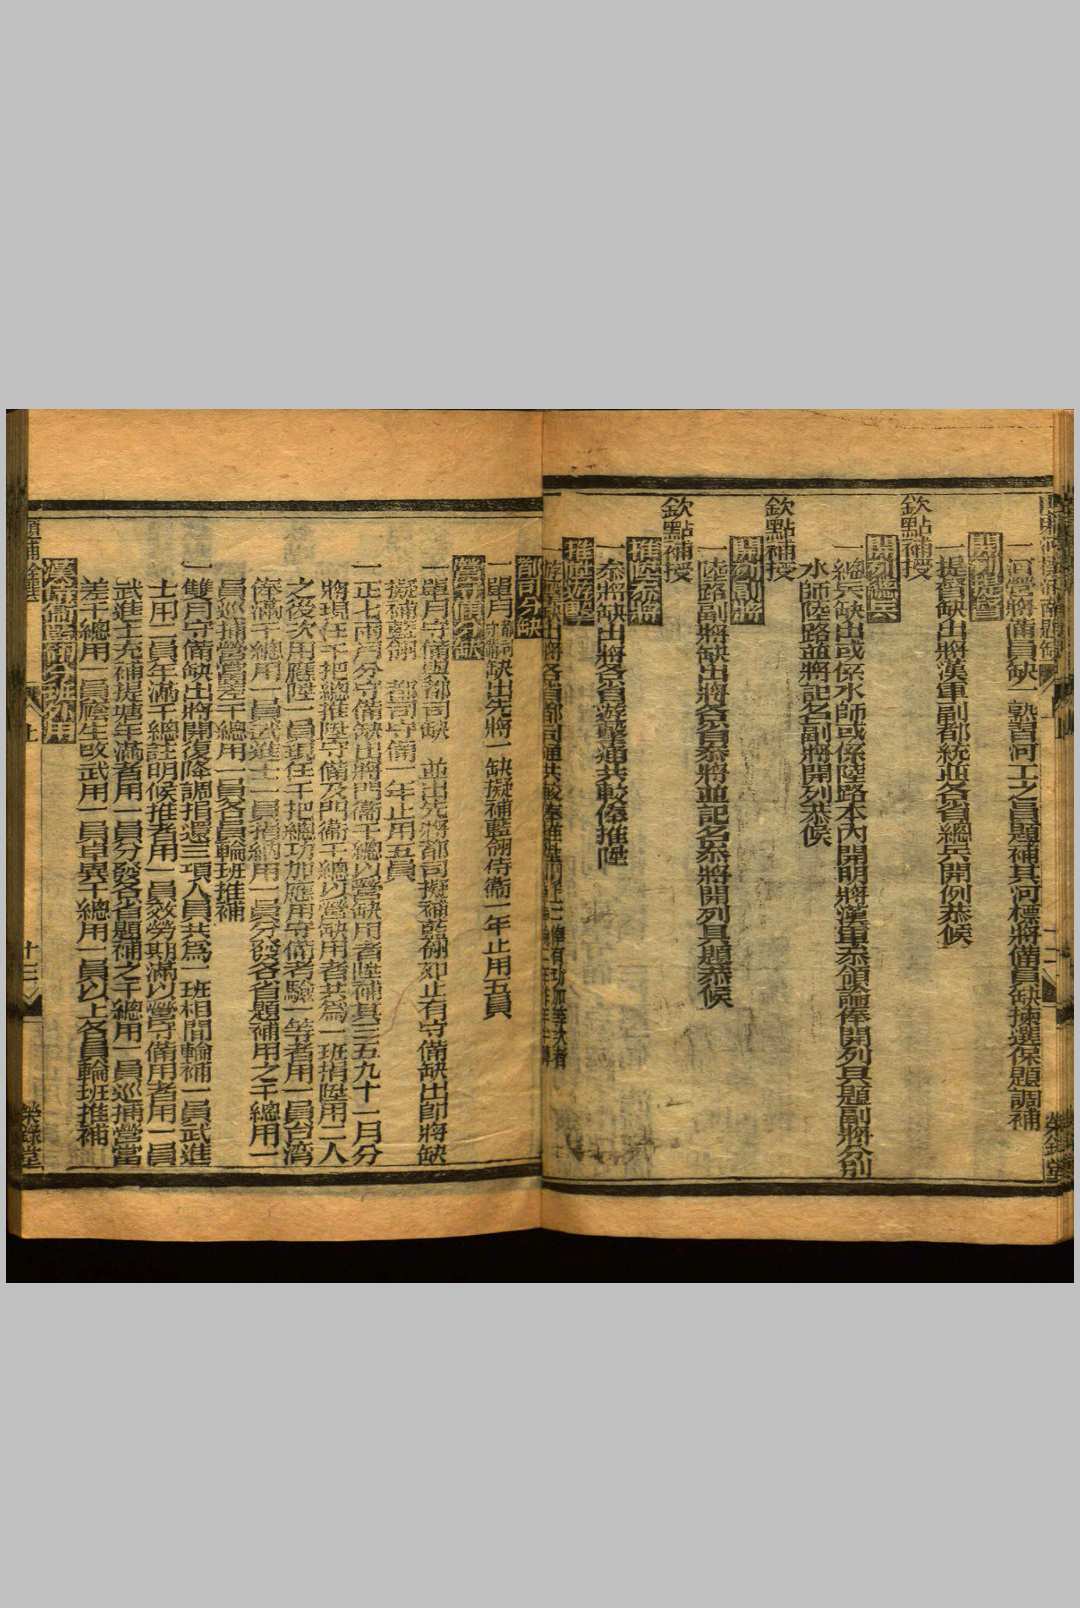 一河營將備員缺一熟習河工之員題補其河標將備員缺揀選保題調補
開列提督
一提督缺出將漢軍副都統並各省總兵開例恭候
欽點補授
開列總兵
一總兵缺出或係水師或係陸路本內開明將漢軍叅領論俸開列具題副將分別
水師陸路並將記名副將開列恭候
欽點補授
開列副將
一陸路副將缺出將各省叅將並記名叅將開列具題恭候
欽點補授
推陞叅將
一叅將缺出將各省遊擊通共較俸推陞
推陞遊擊
一遊擊缺出將各省都司通共較俸推陞
都司分缺
一單月缺出先將一缺擬補藍翎侍衞一年止用五員
營守備分缺
一單月守備與都司缺 並出先將都司擬補藍翎如止有守備缺出卽將缺
擬補藍翎 都司守備一年止用五員
一正七兩月分守備缺出將門衞千總以營缺用者陞補其三五九十一月分
將現任千把總推陞守備及門衞千總以營缺用者共爲一班捐陞用二人
之後次用應陞一員現任千把總功加應用守備者驗一等者用一員台湾
俸滿千總用一員武進士一員捐納用一員分發各省題補用之千總用一
員巡捕營當差千總用一員各員輪班推補
一雙月守備缺出將開復降調捐還三項人員共爲一班相間輪補一員武進
士用一員年滿千總註明候推者用一員效勞期滿以營守備用者用一員
武進士充補提塘年滿者用一員分發各省題補之千總用一員巡捕營當
差千總用一員廕生改武用一員卓異千總用一員以上各員輪班推補
上
十三
榮錄堂